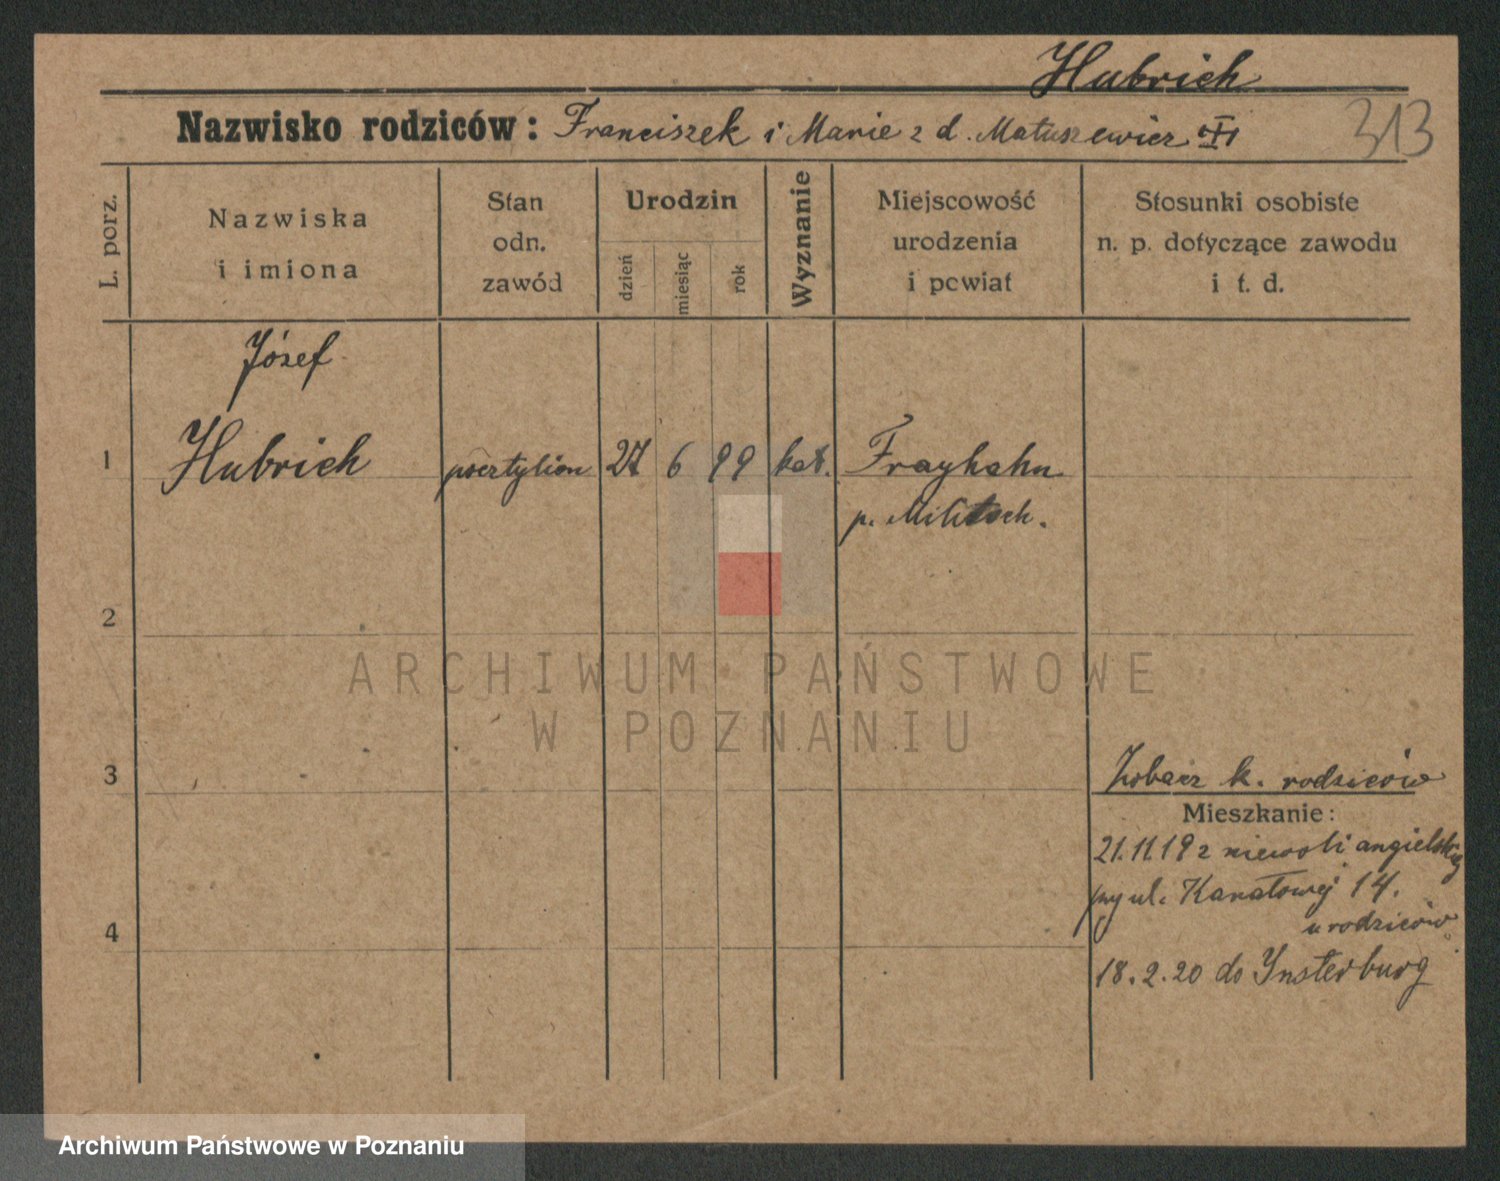 Hubrich
Nazwisko rodziców: Franciszek i Marie z d. Matuszewicz
313
L. porz.
Nazwiska
i imiona
Stan
odn.
zawód
Urodzin
dzień
miesiąc
rok
Wyznanie
Miejscowość
urodzenia
i powiat
Stosunki osobiste
n. p. dotyczące zawodu
i t. d.
Józef
1 Hubrich pocztylion 27 6 99 kat. Frayhahn
p. Militsch.
2
3
Zobacz k. rodziców
Mieszkanie:
21.11.19 z niewoli angielskiej
przy ul. Kanałowej 14.
u rodziców
4
18.2.20 do Ynsterburg
ARCHIWUM PAŃSTWOWE
W POZNANIU
Archiwum Państwowe w Poznaniu